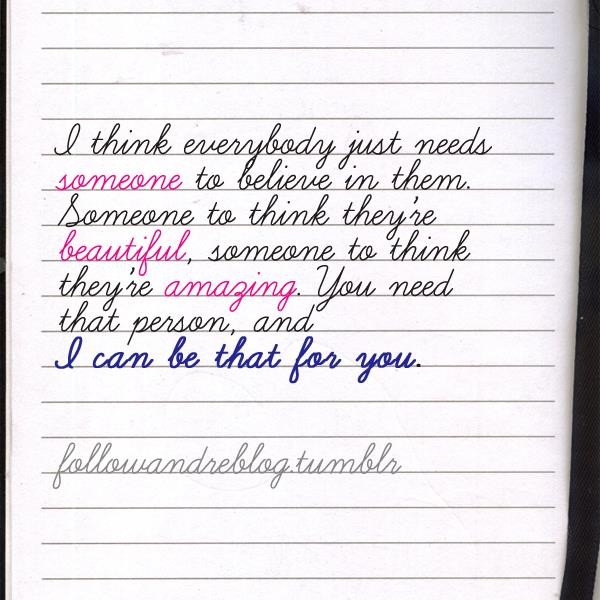 I think everybody just needs
someone to believe in them.
Someone to think they're
beautiful, someone to think
they're amazing. You need
that person, and
I can be that for you.
followandreblog.tumblr